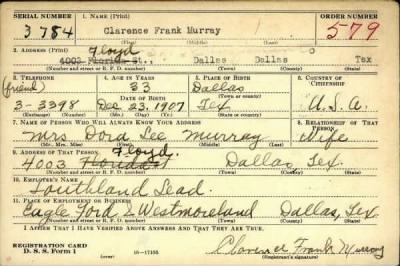 SERIAL NUMBER 1. NAME (Print) ORDER NUMBER
3784 Clarence Frank Murray 579
(First) (Middle) (Last)
2. ADDRESS (Print) Floyd
4003 Florida St., Dallas Dallas Tex
(Number and street or R. F. D. number) (Town) (County) (State)
3. TELEPHONE 4. AGE IN YEARS 5. PLACE OF BIRTH 6. COUNTRY OF CITIZENSHIP
(friend) 33 Dallas
DATE OF BIRTH (Town or county)
3-3398 Dec 23, 1907 Tex U.S.A.
(Exchange) (Number) (Mo.) (Day) (Yr.) (State or country)
7. NAME OF PERSON WHO WILL ALWAYS KNOW YOUR ADDRESS 8. RELATIONSHIP OF THAT PERSON
Mrs Dora Lee Murray Wife
(Mr., Mrs., Miss) (First) (Middle) (Last)
9. ADDRESS OF THAT PERSON Floyd
4003 Dallas, Tex.
(Number and street or R. F. D. number) (Town) (County) (State)
10. EMPLOYER'S NAME
Southland Lead.
11. PLACE OF EMPLOYMENT OR BUSINESS
Eagle Ford & Westmoreland Dallas, Tex.
(Number and street or R. F. D. number) (Town) (County) (State)
I AFFIRM THAT I HAVE VERIFIED ABOVE ANSWERS AND THAT THEY ARE TRUE.
REGISTRATION CARD
D. S. S. Form 1 16—17105 Clarence Frank Murray
(Registrant's signature)